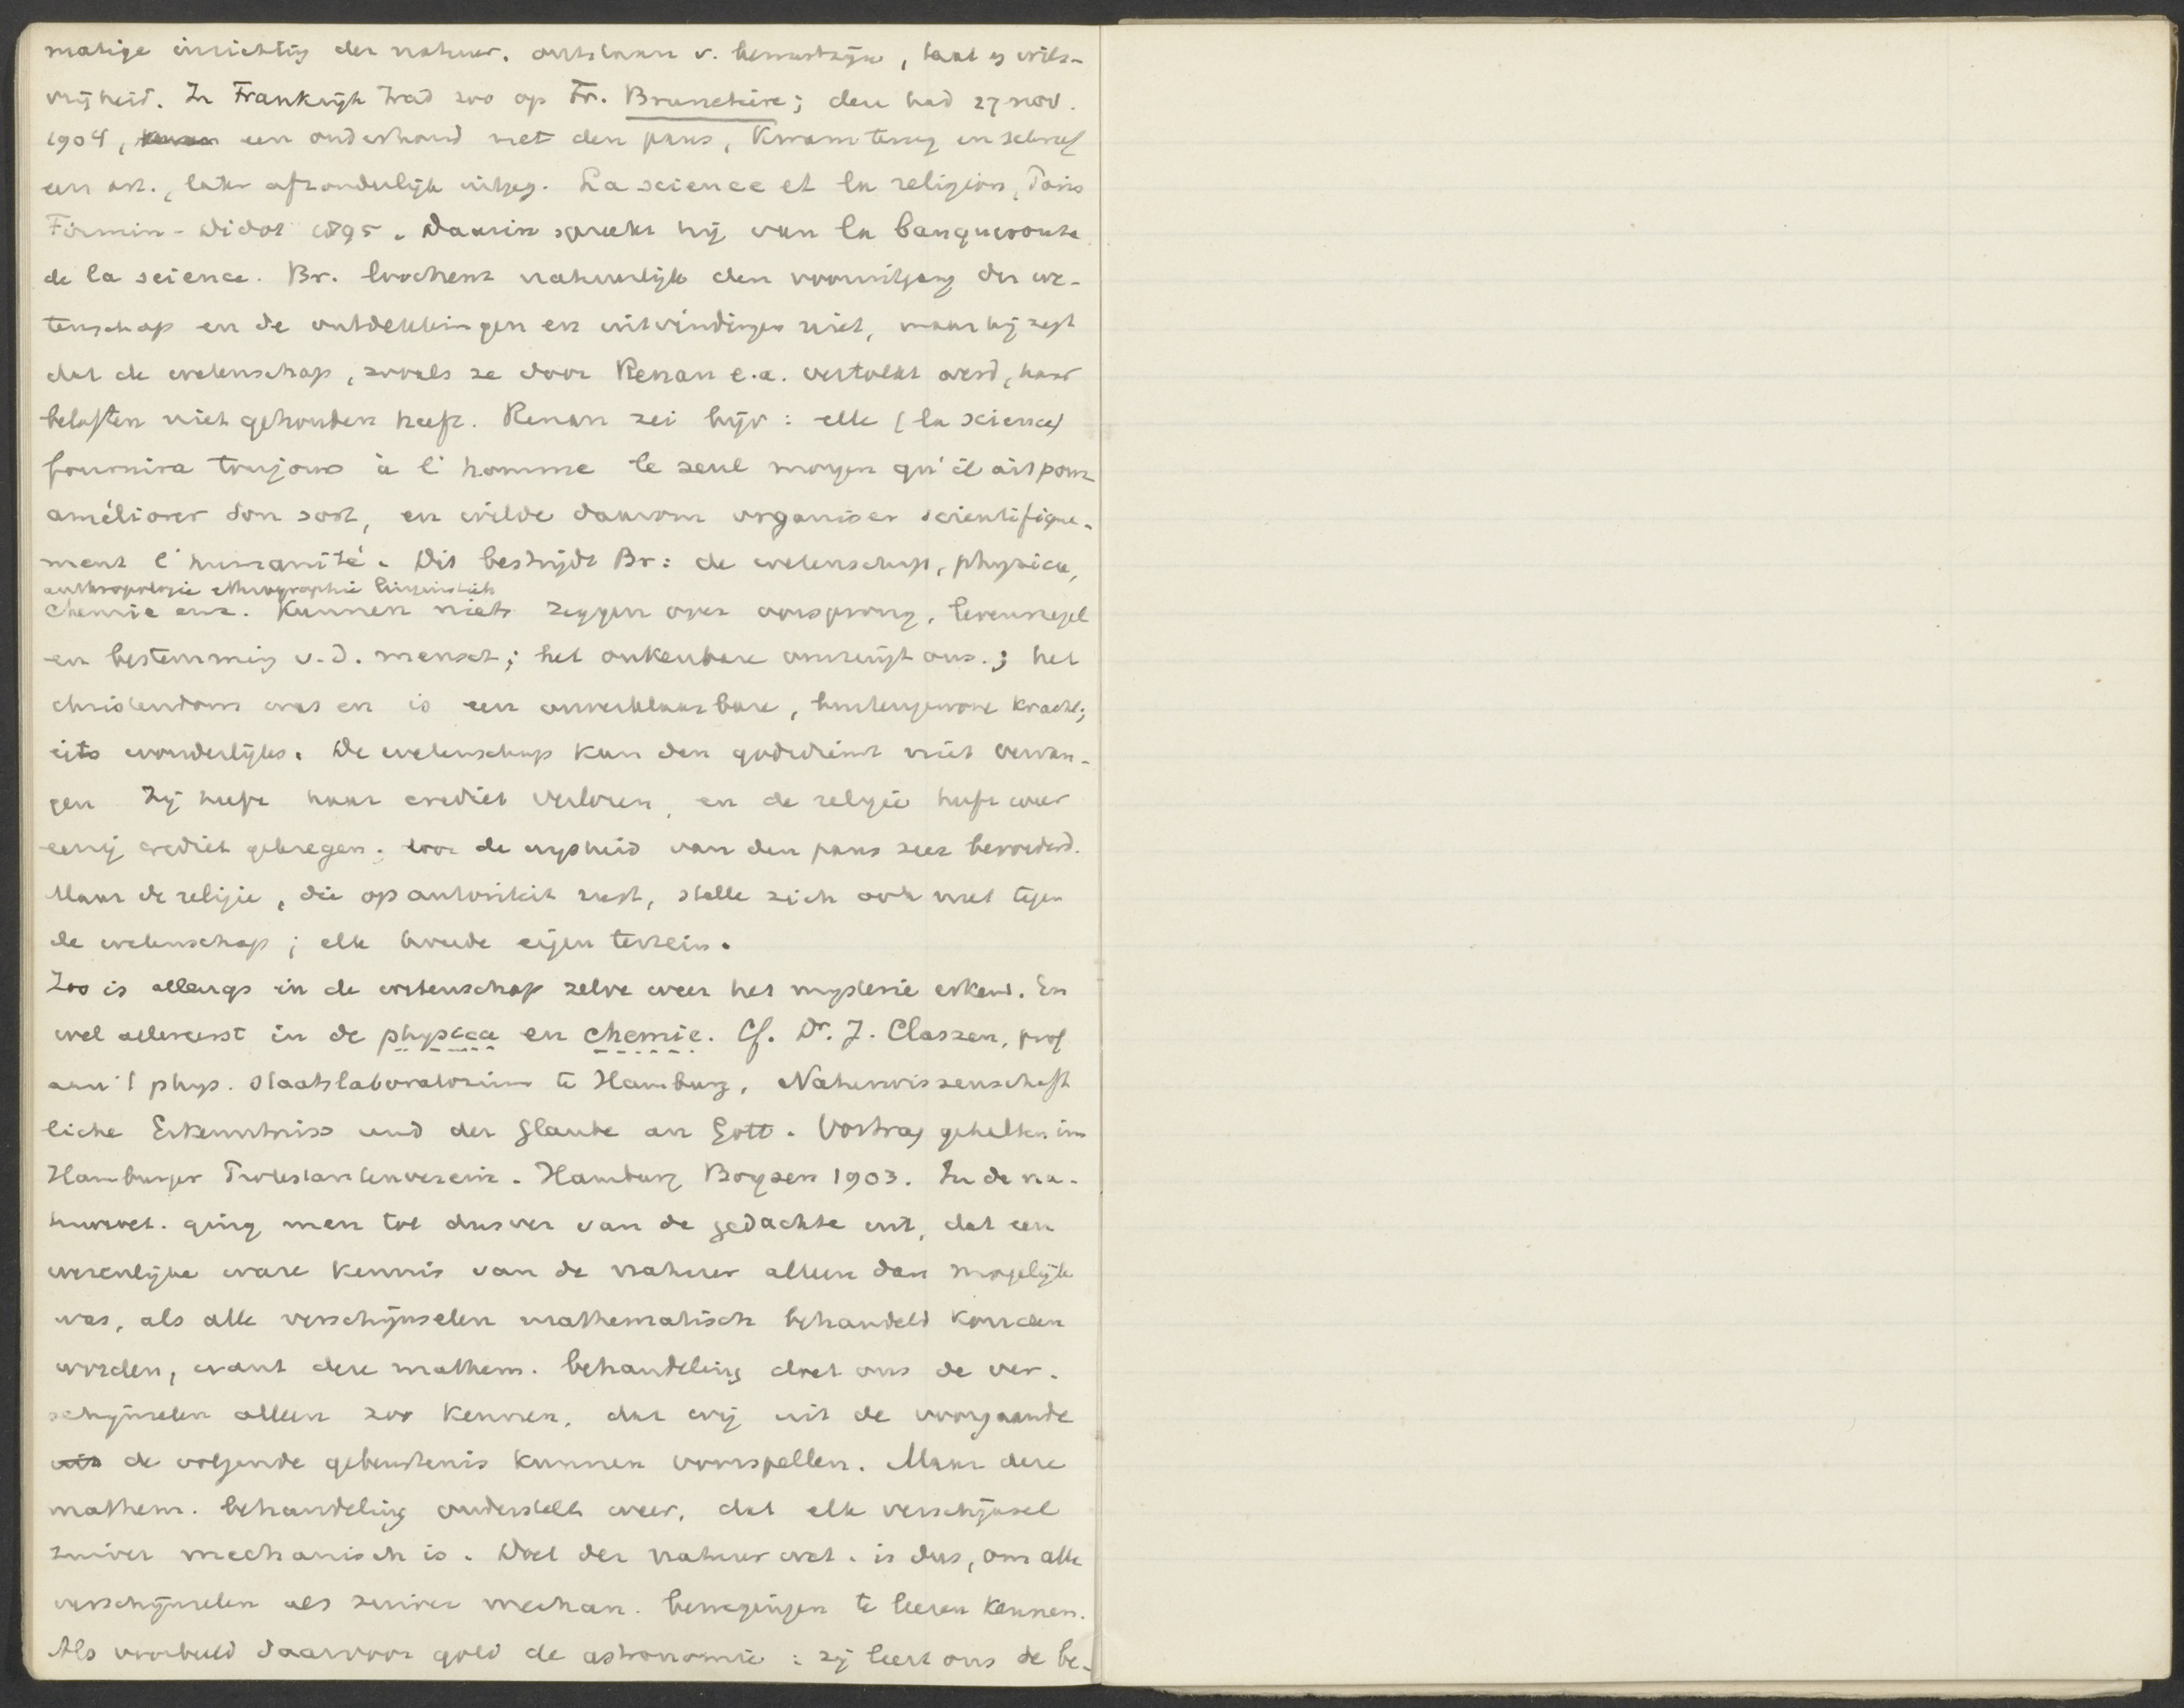 matige inrichting der natuur. ontstaan v. bewustzijn, taal en wils-
vrijheid. In Frankrijk trad zoo op Fr. Brunetière; deze had 27 nov.
1904, een onderhoud met den paus, kwam terug en schreef
een art., later afzonderlijk uitgeg. La science et la religion, Paris
Firmin-Didot 1895. Daarin spreekt hij van la banqueroute
de la science. Br. loochent natuurlijk den vooruitgang der we-
tenschap en de ontdekkingen en uitvindingen niet, maar hij zegt
dat de wetenschap, zooals ze door Renan e.a. vertolkt werd, haar
beloften niet gehouden heeft. Renan zei bijv: elle (la science)
fournira toujours à l'homme le seul moyen qu'il ait pour
améliorer son sort, en wilde daarom organiser scientifique-
ment l'humanité. Dit bestrijdt Br: de wetenschap, physica,
anthropologie ethnographie linguistiek
chemie enz. kunnen niets zeggen over oorsprong, levensregel
en bestemming v.d. mensch; het onkenbare omringt ons.; het
christendom was en is een onverklaarbare, buitengewone kracht;
iets wonderlijks. De wetenschap kan den godsdienst niet vervan-
gen Zij heeft haar crediet verloren, en de religie heeft weer
eenig crediet gekregen. door de wijsheid van den paus zeer bevorderd.
Maar de religie, die op autoriteit rust, stelle zich ook niet tegen
de wetenschap; elk houde eigen terrein.
Zoo is allengs in de wetenschap zelve weer het mysterie erkend. En
wel allereerst in de physica en chemie. Cf. Dr. J. Classen, prof
aan 't phys. Staatslaboratorium te Hamburg, Naturwissenschaft
liche Erkenntniss und der Glaube an Gott. Vortrag gehalten im
Hamburger Protestantenverein. Hamburg Boysen 1903. In de na-
tuurwet. ging men tot dusver van de gedachte uit, dat een
wezenlijke ware kennis van de natuur alleen dan mogelijk
was, als alle verschijnselen mathematisch behandeld konden
worden, want deze mathem. behandeling doet ons de ver-
schijnselen alleen zoo kennen, dat wij uit de voorgaande
de volgende gebeurtenis kunnen voorspellen. Maar deze
mathem. behandeling onderstelt weer, dat elk verschijnsel
zuiver mechanisch is. Doel der natuurwet. is dus, om alle
verschijnselen als zuiver mechan. bewegingen te leeren kennen.
Als voorbeeld daarvoor gold de astronomie: zij leert ons de be-